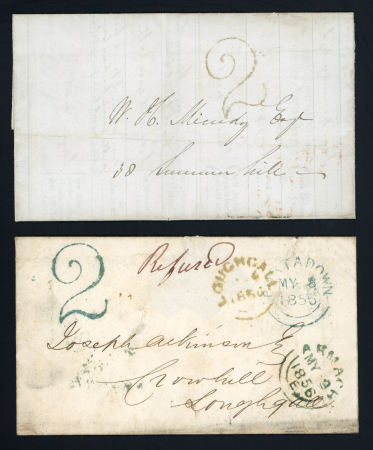 2
W. H. Micudy Esqr
38 Summer hill
2
Refused
LOUGHGALL
1856
PORTADOWN
MY 8
1856
Joseph Atkinson Eq
Crowhill
Loughgall
ARMAGH
MY
1856